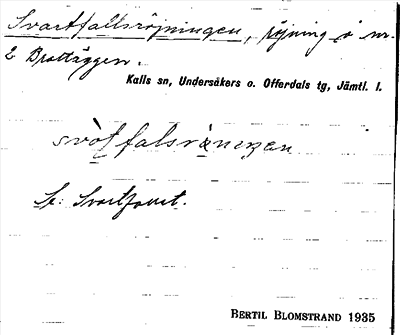 Svartfallsröjningen, röjning å nr.
2 Brattäggen.
Kalls sn, Undersåkers o. Offerdals tg, Jämtl. l.
svòt falsrä̀nengan
Se: Svartforset.
BERTIL BLOMSTRAND 1935